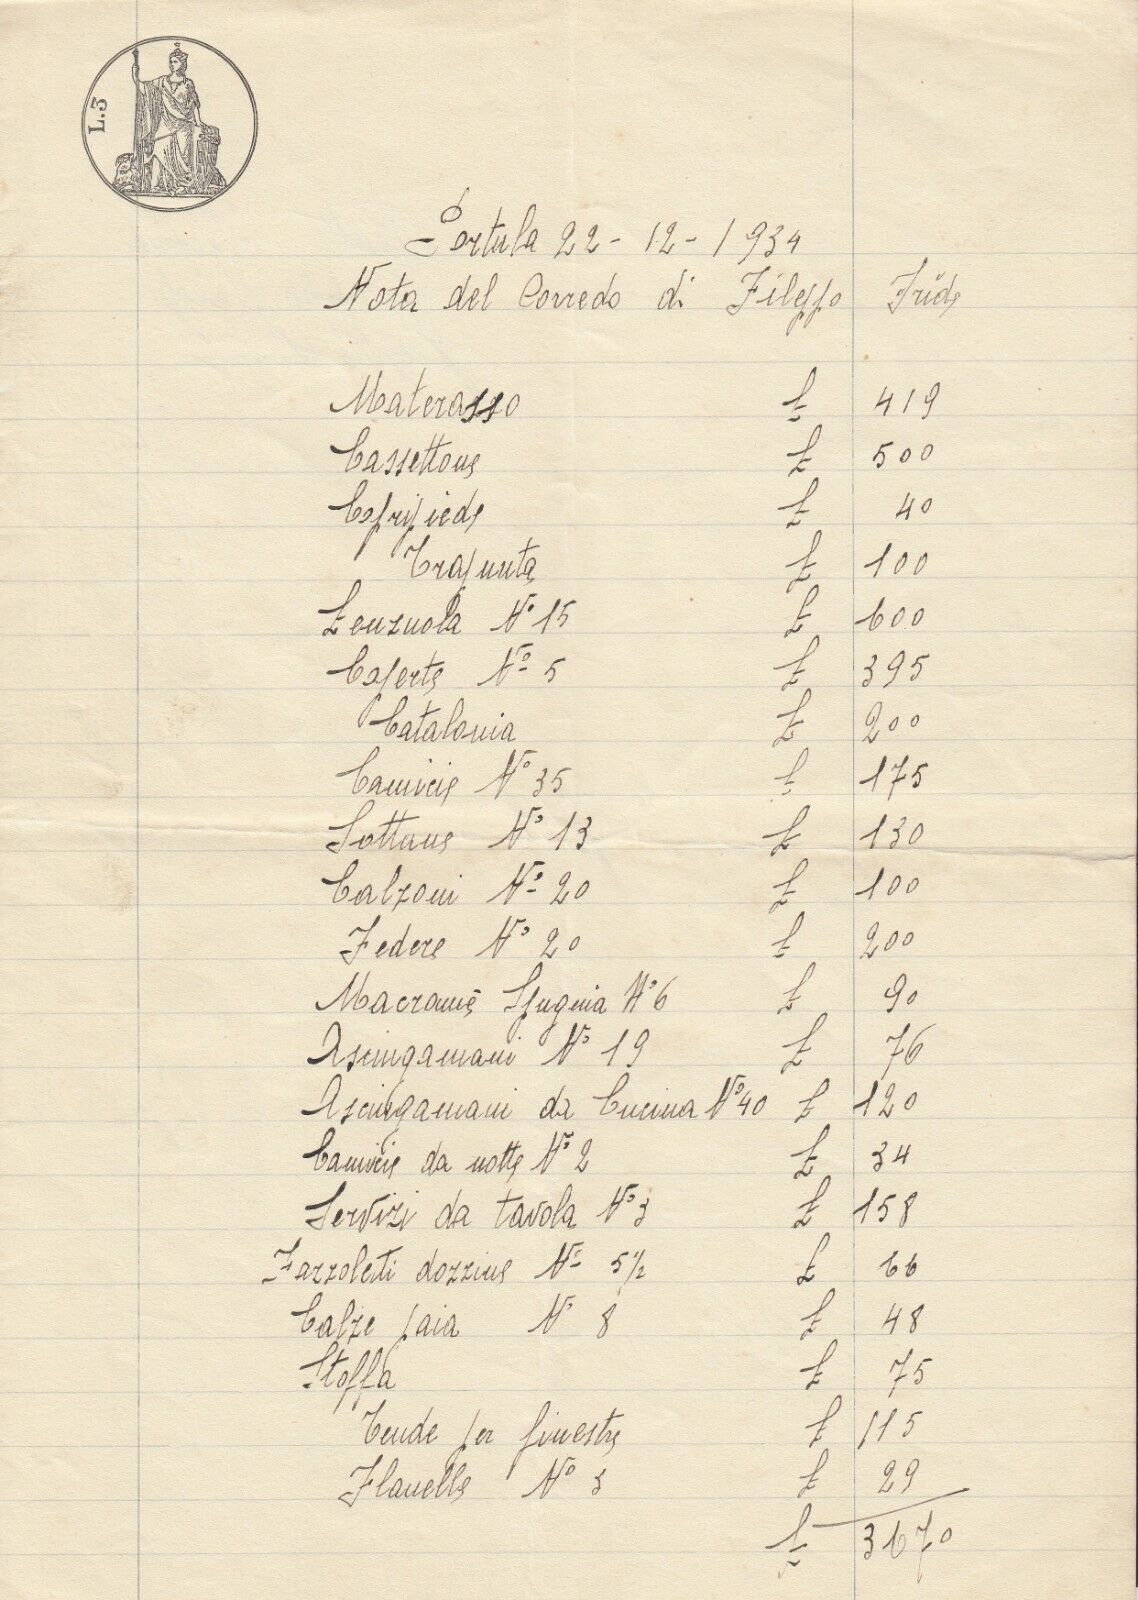 L.3
Portula 22-12-1934
Nota del Corredo di Fileppo Iride
Materasso £ 419
Cassettone £ 500
Copripiede £ 40
Trapunta £ 100
Lenzuola N° 15 £ 600
Coperte N° 5 £ 395
Catalonia £ 200
Camicie N° 35 £ 175
Sottane N° 13 £ 130
Calzoni N° 20 £ 100
Federe N° 20 £ 200
Macramè Spugnia N° 6 £ 90
Asciugamani N° 19 £ 76
Asciugamani da Cucina N° 40 £ 120
Camicie da notte N° 2 £ 34
Servizi da tavola N° 3 £ 158
Fazzoletti dozzine N° 5 1/2 £ 66
Calze paia N° 8 £ 48
Stoffa £ 75
Tende per finestre £ 115
Flanelle N° 3 £ 29
£ 3670